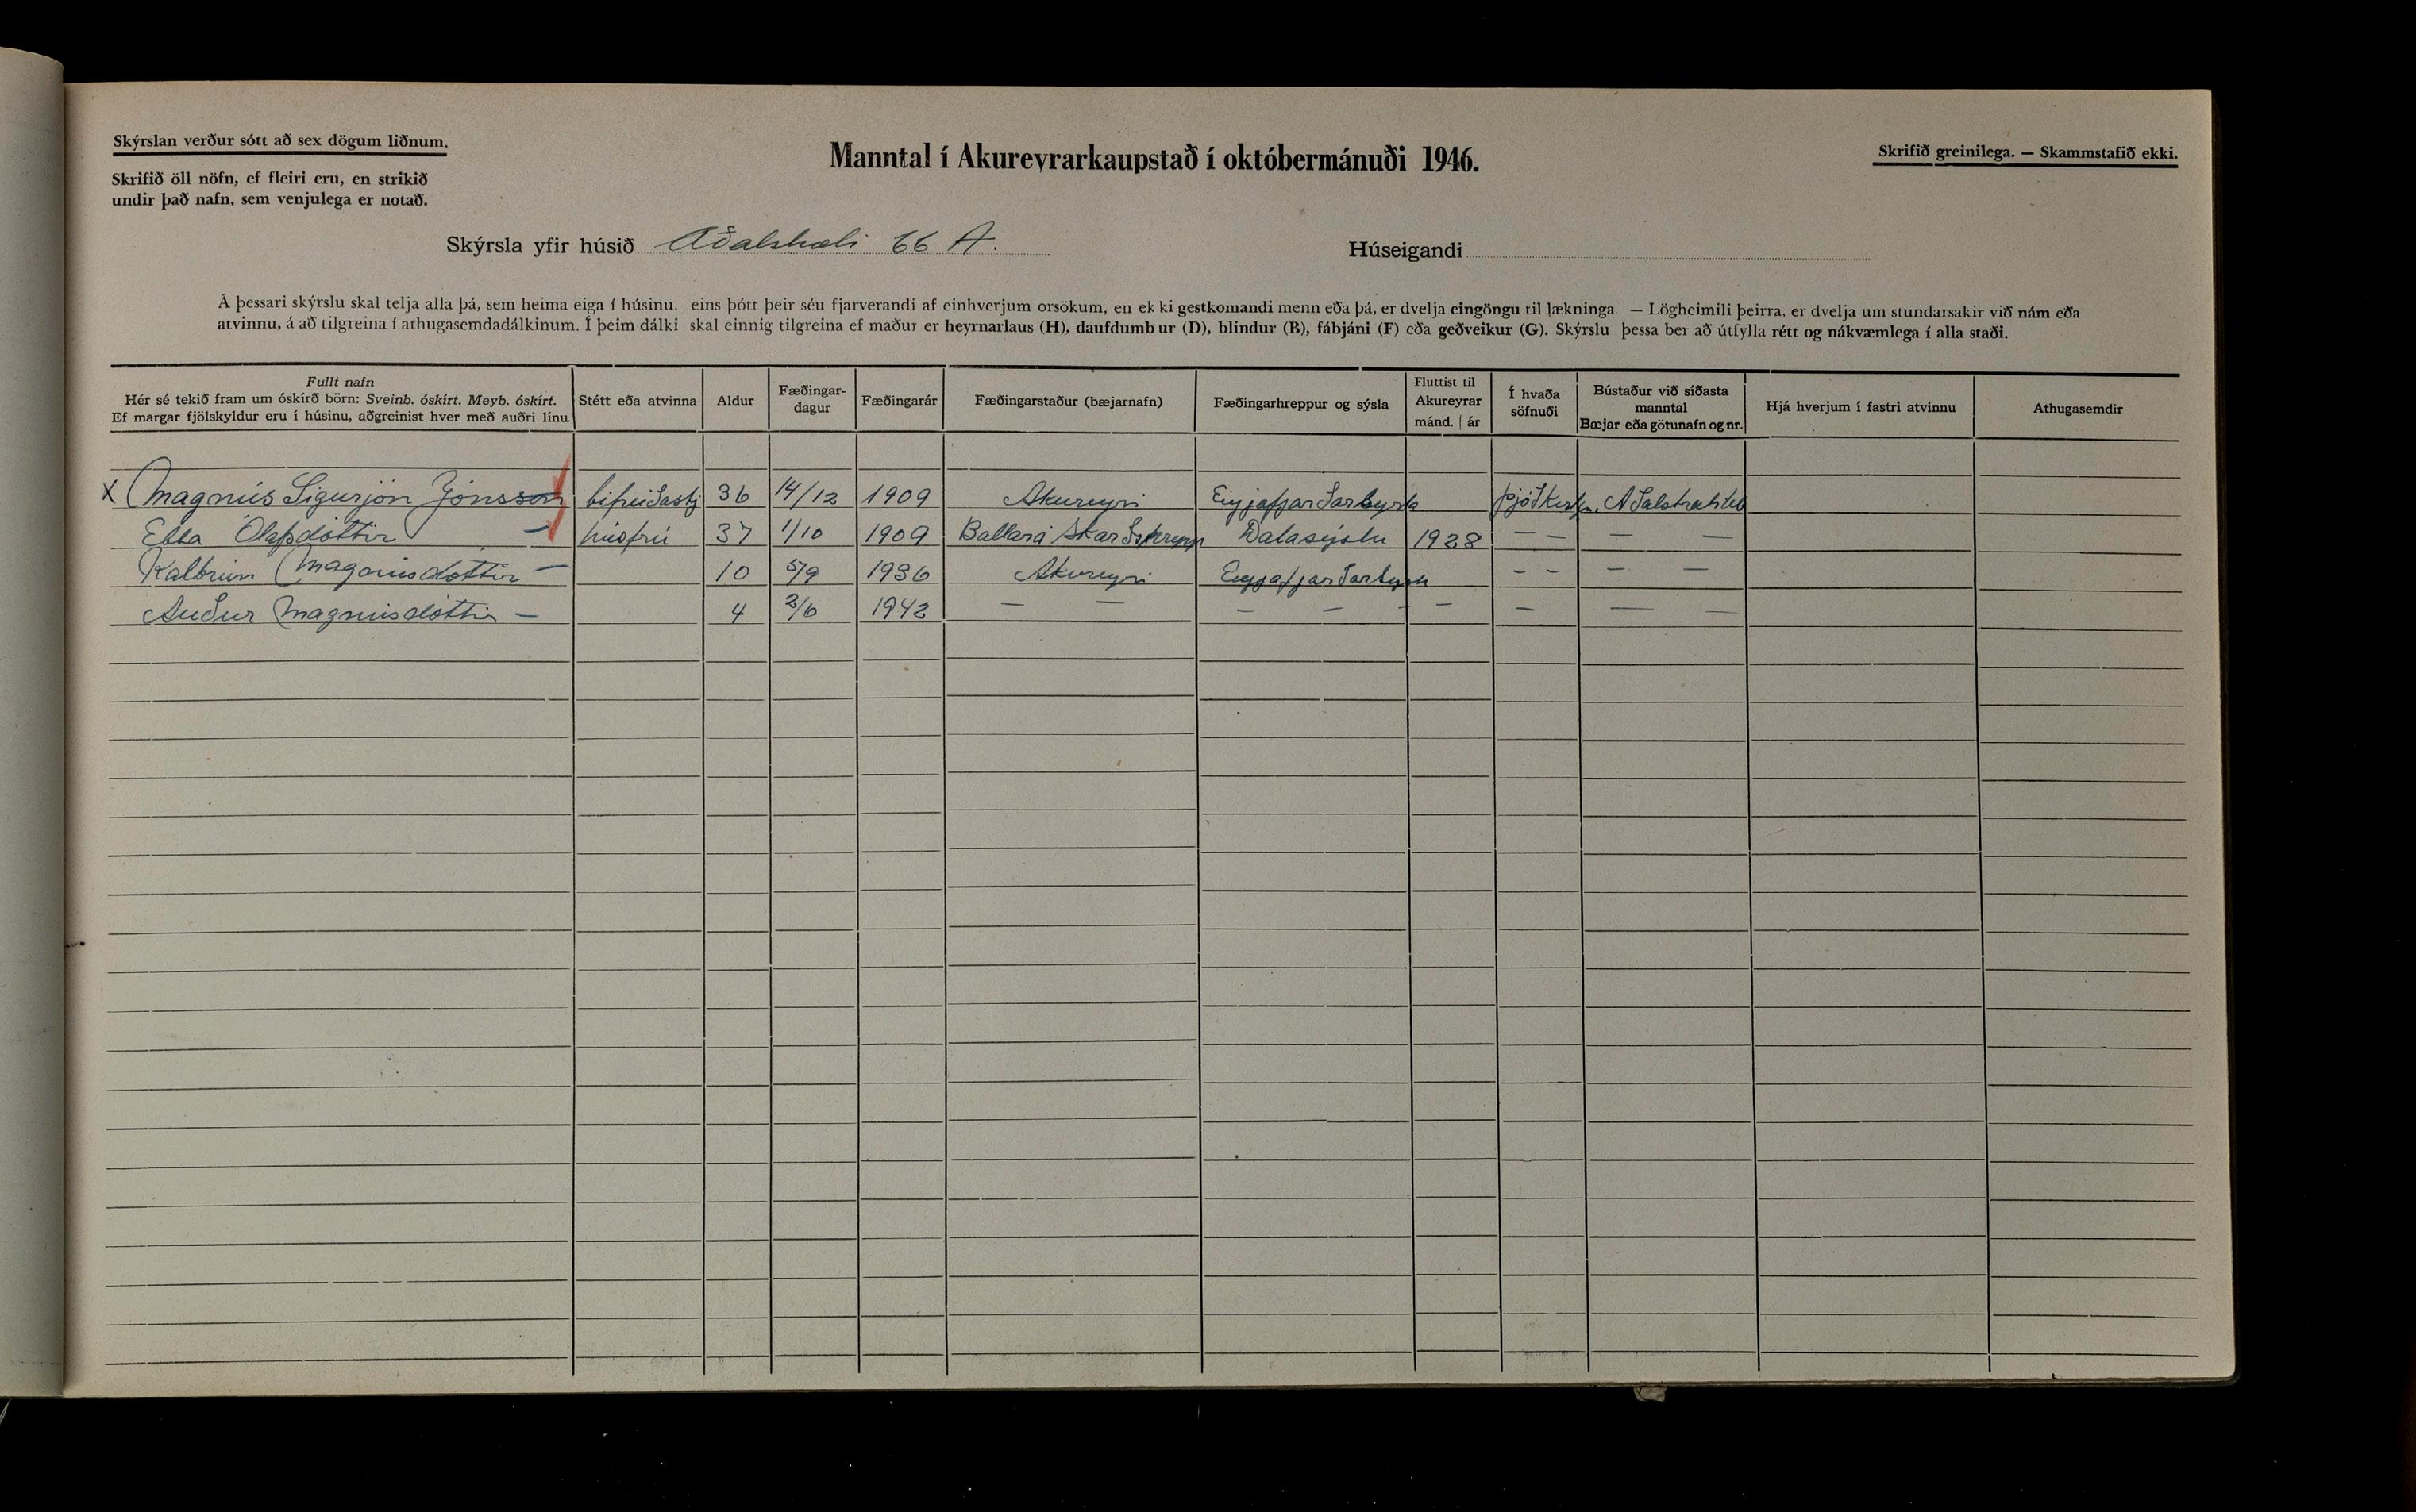 Skýrslan verður sótt að sex dögum liðnum.
Skrifið öll nöfn, ef fleiri eru, en strikið
undir það nafn, sem venjulega er notað.
Manntal í Akureyrarkaupstað í októbermánuði 1946.
Skrifið greinilega. — Skammstafið ekki.
Skýrsla yfir húsið Aðalstræti 66 A.
Húseigandi
Á þessari skýrslu skal telja alla þá, sem heima eiga í húsinu. eins þótt þeir séu fjarverandi af einhverjum orsökum, en ekki gestkomandi menn eða þá, er dvelja eingöngu til lækninga — Lögheimili þeirra, er dvelja um stundarsakir við nám eða
atvinnu, á að tilgreina í athugasemdadálkinum. Í þeim dálki skal einnig tilgreina ef maður er heyrnarlaus (H), daufdumbur (D), blindur (B), fábjáni (F) eða geðveikur (G). Skýrslu þessa ber að útfylla rétt og nákvæmlega í alla staði.
Fullt nafn
Hér sé tekið fram um óskírð börn: Sveinb. óskírt. Meyb. óskírt.
Ef margar fjölskyldur eru í húsinu, aðgreinist hver með auðri línu
Stétt eða atvinna
Aldur
Fæðingar-
dagur
Fæðingarár
Fæðingarstaður (bæjarnafn)
Fæðingarhreppur og sýsla
Fluttist til
Akureyrar
mánd. | ár
Í hvaða
söfnuði
Bústaður við síðasta
manntal
Bæjar eða götunafn og nr.
Hjá hverjum í fastri atvinnu
Athugasemdir
X Magnús Sigurjón Jónsson bifreiðastj 36 14/12 1909 Akureyri Eyjafjarðarsýsla þjóðkirkju
Ebba Ólafsdóttir — húsfrú 37 1/10 1909 Ballará Skarðshrepp Dalasýslu 1928 — — — —
Magnúsdóttir — 10 5/9 1936 Akureyri Eyjafjarðarsýslu — — — —
Auður Magnúsdóttir — 4 2/6 1942 — — — — — — — —